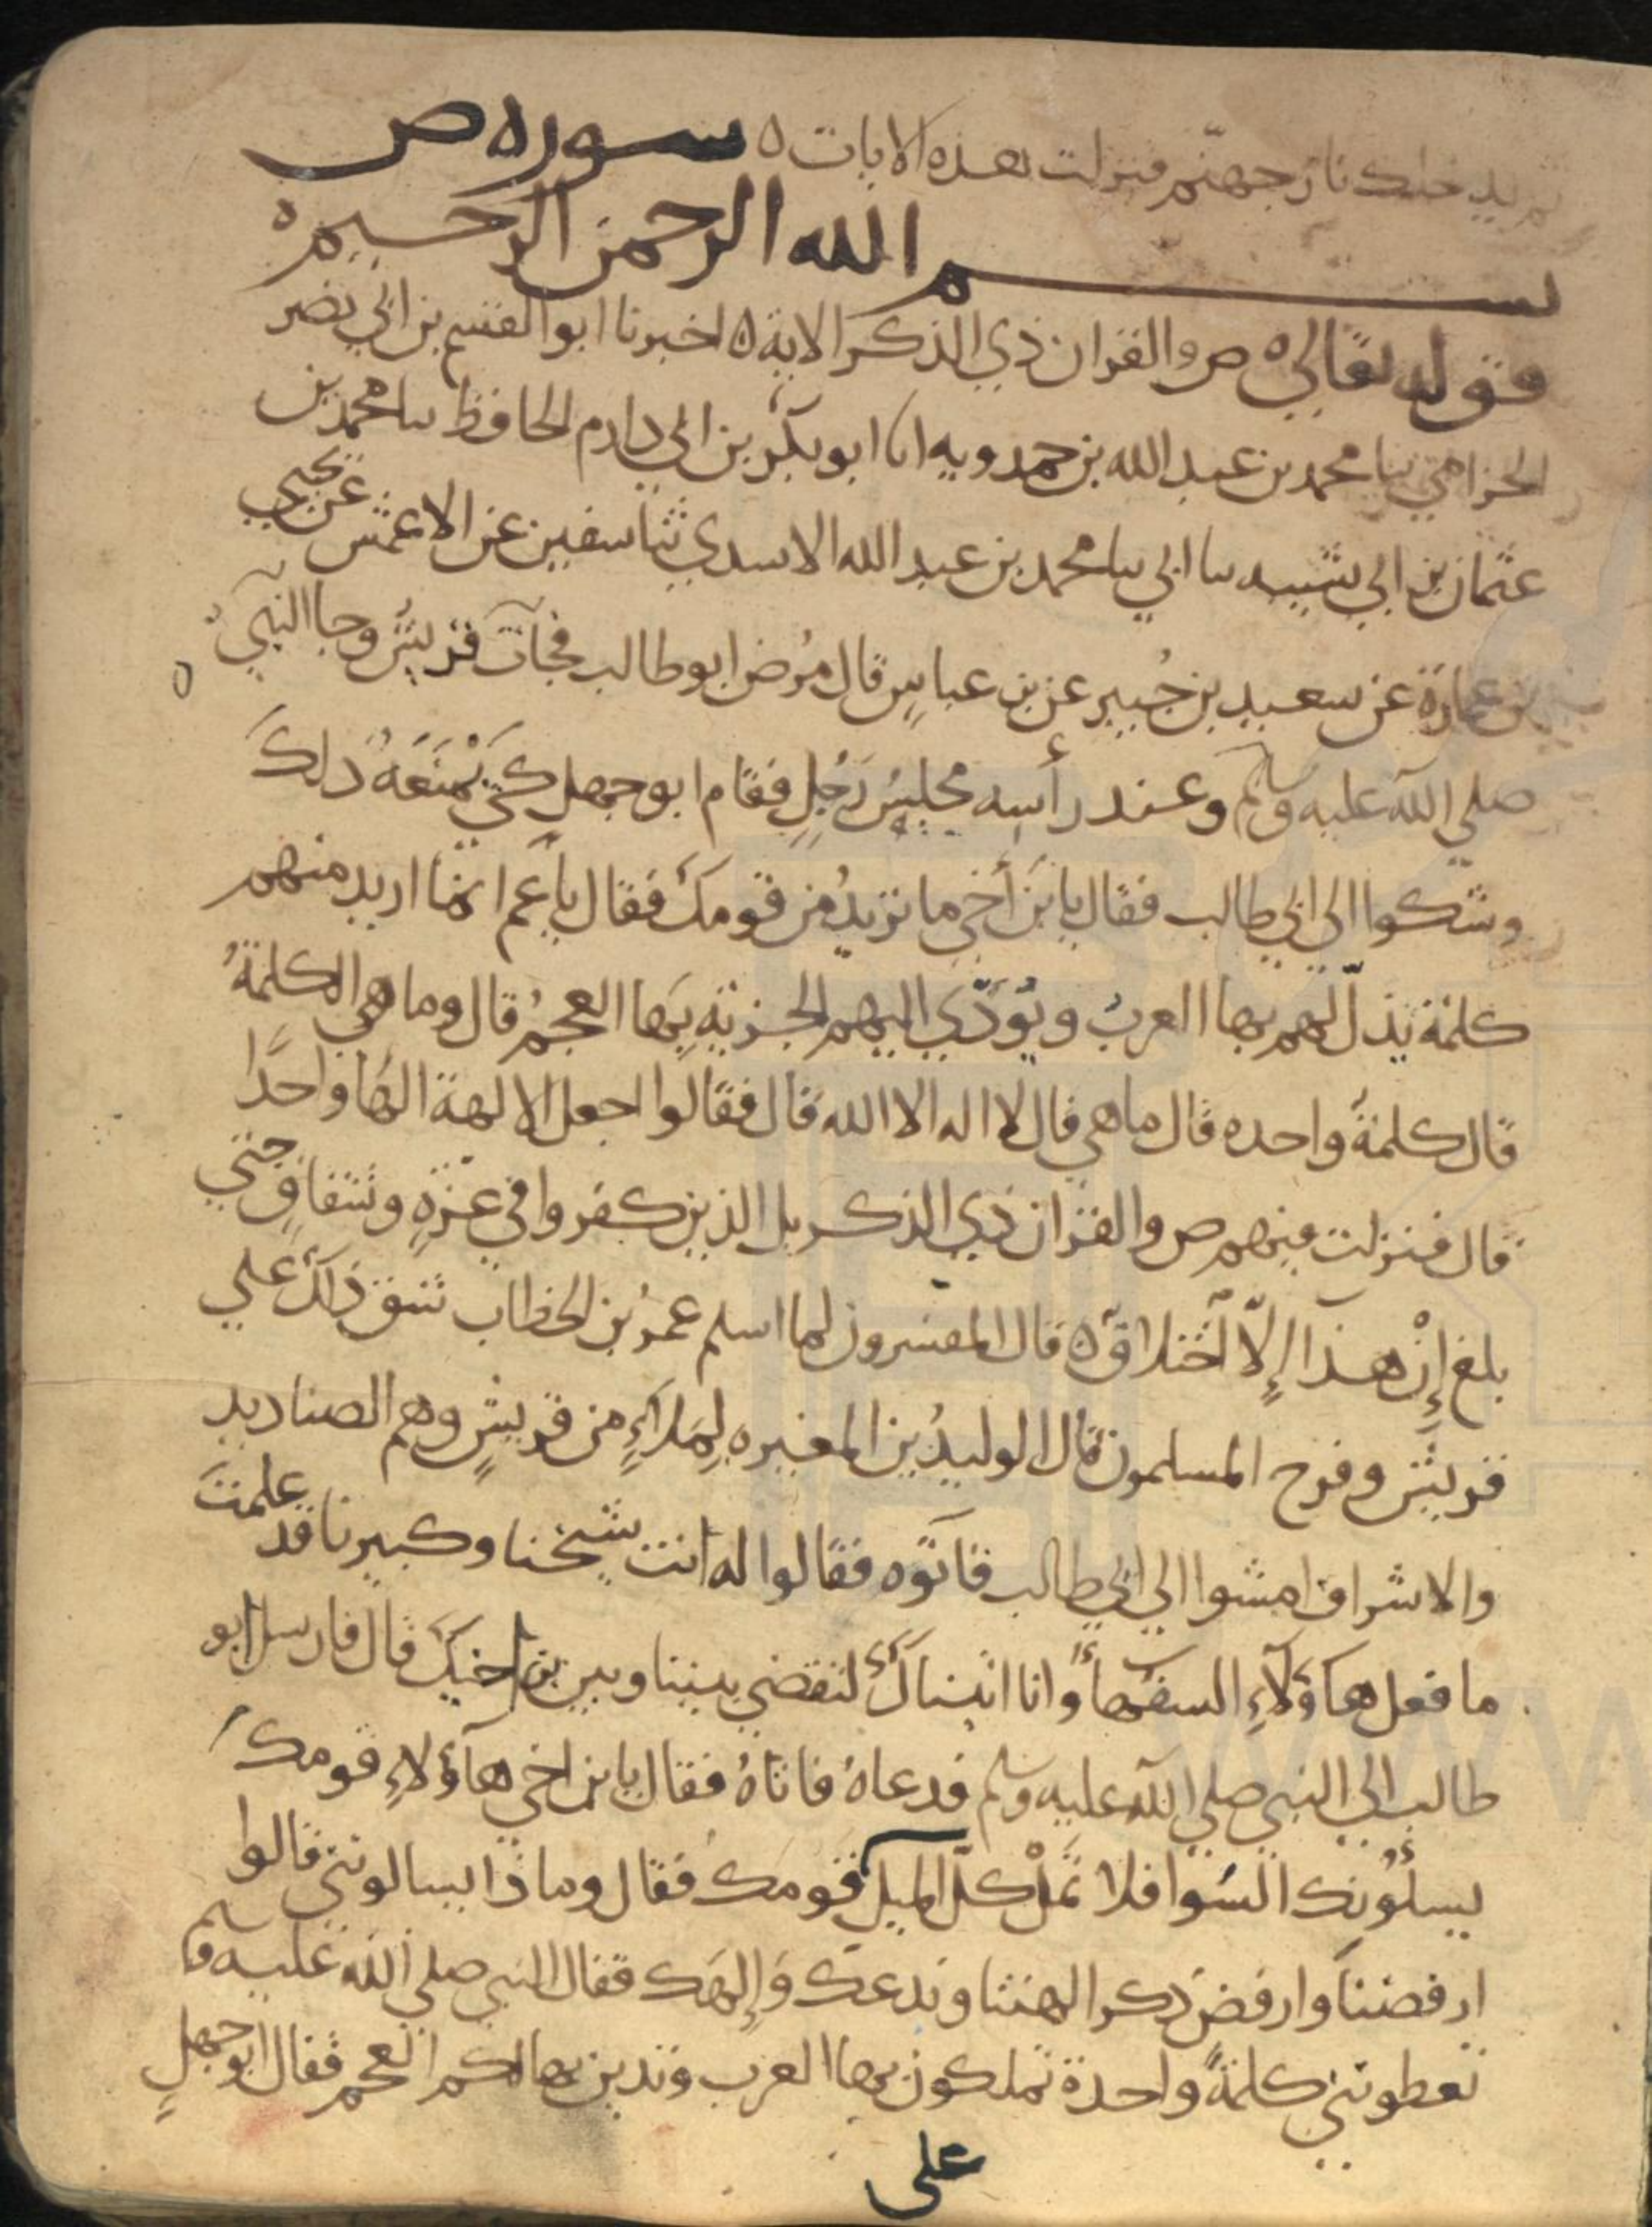 ثم يدخلك نار جهنم فنزلت هذه الايات ه سوره ص
بسم الله الرحمن الرحيم ه
قوله تعالى ه ص والقران ذي الذكر الاية ه اخبرنا ابو القسم بن ابي نصر
الخزامي ثنا محمد بن عبد الله بن حمدويه انا ابو بكر بن ابي دارم الحافظ ثنا محمد بن
عثمان بن ابي شيبه ثنا ابي ثنا محمد بن عبد الله الاسدي ثنا سفين عن الاعمش عن يحيى
بن عمارة عن سعيد بن جُبير عن بن عباسٍ قال مرُض ابو طالب فجآت قريشُ وجا النبي
صلي الله عليه وسلم وعند رأسه مجلسُ رَجُلٍ فقام ابو جهلٍ كَيْ يَمْنَعَهُ ذلكَ
وشكوا الي ابي طالب فقال يا بنَ أخي ما تريدُ من قومكَ فقال يا عم انما اريد منهم
كلمة تذلّ لهم بها العربُ ويُؤدّي اليهم الجزية بها العجمُ قال وما هي الكلمةُ
قال كلمةً واحده قال ما هي قال لا اله الا الله قال فقالوا اجعل الالهة الها واحدًا
قال فنزلت فيهم ص والقران ذي الذكر بل الذين كفروا في عزةٍ وشقاقٍ حتي
بلغ إنْ هذا إلّا اختلاق ه قال المفسرون لما اسلم عمرُ بن الخطاب شق ذلك علي
قريشٍ وفرح المسلمون قال الوليدُ بن المغيره لِمَلاءٍ من قريشٍ وهم الصناديد
والاشراف امشوا الي ابي طالب فاتوّه فقالوا له انت شيخنا وكبيرنا قد علمتَ
ما فعل هآؤلآءِ السفهاءُ وانا اتيناكَ لتقضي بيننا وبين بن اخيكَ قال فارسل ابو
طالب الي النبي صلي الله عليه وسلم فدعاهُ فاتاهُ فقال يا بن اخي هآؤلاءِ قومكَ
يسلُونك السُوا فلا تَملْ كلّ الميل قومكَ فقال وماذا يسالونني قالوا
ارفضنا وارفض ذكر الهتنا وندعكَ وَإلهكَ فقال النبي صلي الله عليه وسلم
تعطونني كلمةً واحدة تملكون بها العرب وتدين بها لكم العجم فقال ابو جهلٍ
على